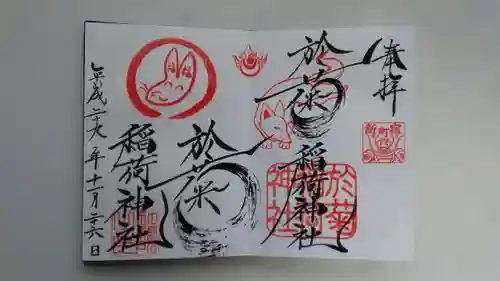 奉拝
於菊
稲荷神社
於菊
神社
於菊
稲荷神社
平成二十九年十一月二十六日